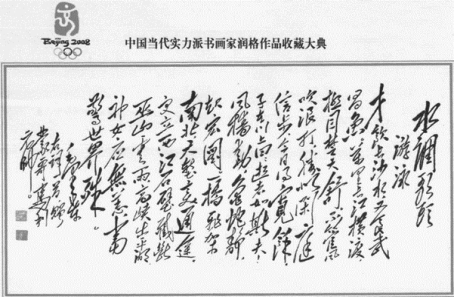 Beijing 2008
中国当代实力派书画家润格作品收藏大典
水调歌头
游泳
才饮长沙水又食武
昌鱼万里长江横渡
极目楚天舒不管风
吹浪打胜似闲庭
信步今日得宽馀
子在川上曰逝者如斯夫
风樯动龟蛇静
起宏图一桥飞架
南北天堑变通途
更立西江石壁截断
巫山云雨高峡出平湖
神女应无恙当
惊世界殊